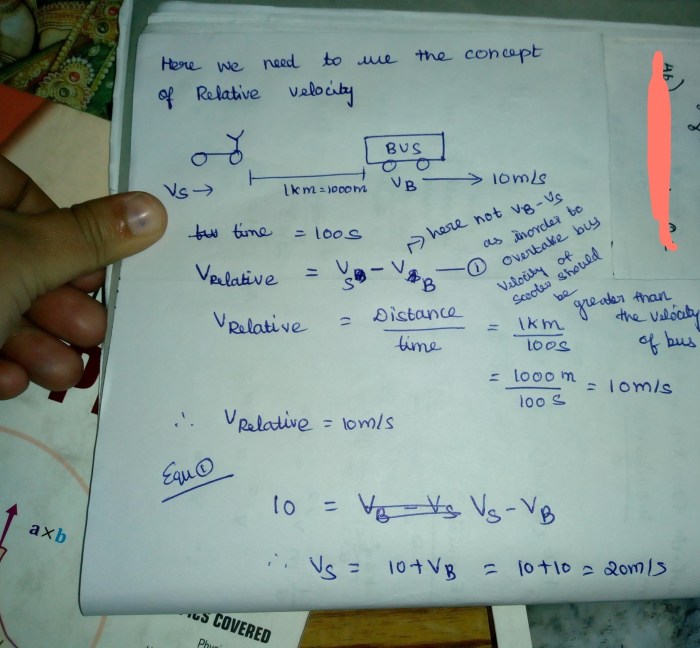 Here we need to use the concept
of Relative velocity
BUS
VS → 1km=1000m VB → 10m/s
time = 100s
here not VB-VS
as inorder to
overtake bus
velocity of
scooter should
be greater than
the velocity
of bus
VRelative = VS - VB — ①
VRelative = Distance/time = 1km/100s
= 1000m/100s = 10m/s
∴ VRelative = 10m/s
Equ ①
10 = VB - VS VS - VB
∴ VS = 10+VB = 10+10 = 20m/s
a×b
CS COVERED